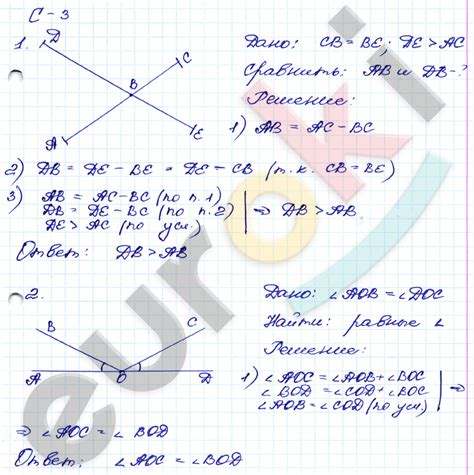 С-3
1.
D
C
B
A
E
Дано: CB = BE; DE > AC
Сравнить: AB и DB-?
Решение:
1) AB = AC - BC
2) DB = DE - BE = DE - CB (т.к. CB = BE)
3) AB = AC - BC (по п.1)
DB = DE - BC (по п.2)
DE > AC (по усл.)
⇒ DB > AB.
Ответ: DB > AB
2.
B
C
A
O
D
Дано: ∠AOB = ∠DOC
Найти: равные ∠
Решение:
1) ∠AOC = ∠AOB + ∠BOC
∠BOD = ∠COD + ∠BOC
∠AOB = ∠COD (по усл.)
⇒
⇒ ∠AOC = ∠BOD
Ответ: ∠AOC = ∠BOD
euroki